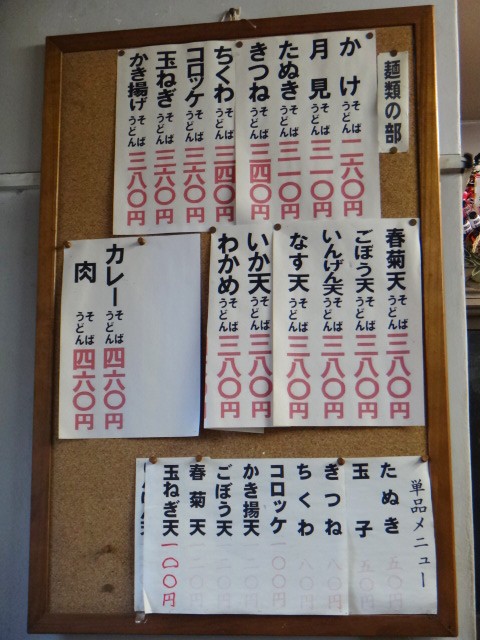 麺類の部
かけそばうどん二六〇円
月見そばうどん三一〇円
たぬきそばうどん三一〇円
きつねそばうどん三四〇円
ちくわそばうどん三四〇円
コロッケそばうどん三六〇円
玉ねぎそばうどん三六〇円
かき揚げそばうどん三八〇円
春菊天そばうどん三八〇円
ごぼう天そばうどん三八〇円
いんげん天そばうどん三八〇円
なす天そばうどん三八〇円
いか天そばうどん三八〇円
わかめそばうどん三八〇円
カレーそばうどん四六〇円
肉そばうどん四六〇円
単品メニュー
たぬき五〇円
玉子五〇円
きつね八〇円
ちくわ八〇円
コロッケ一〇〇円
かき揚天
ごぼう天
春菊天
玉ねぎ天一〇〇円